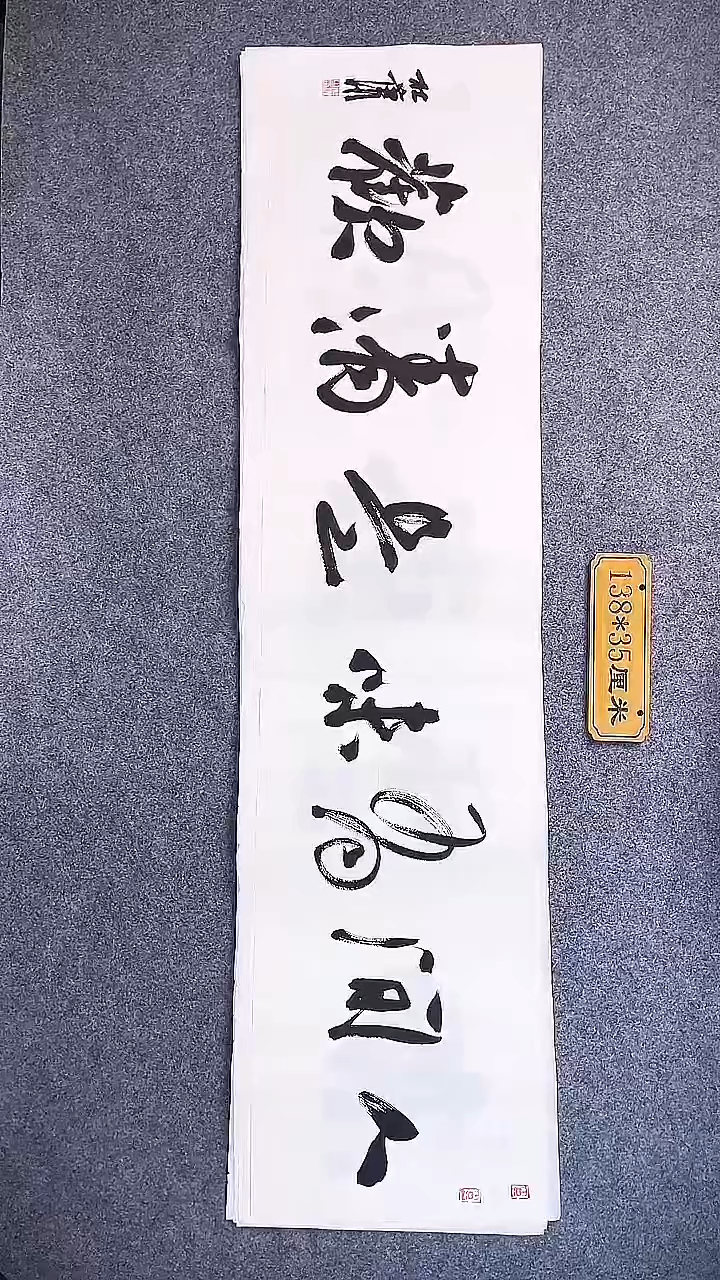 人間有味是清歡
138*35厘米